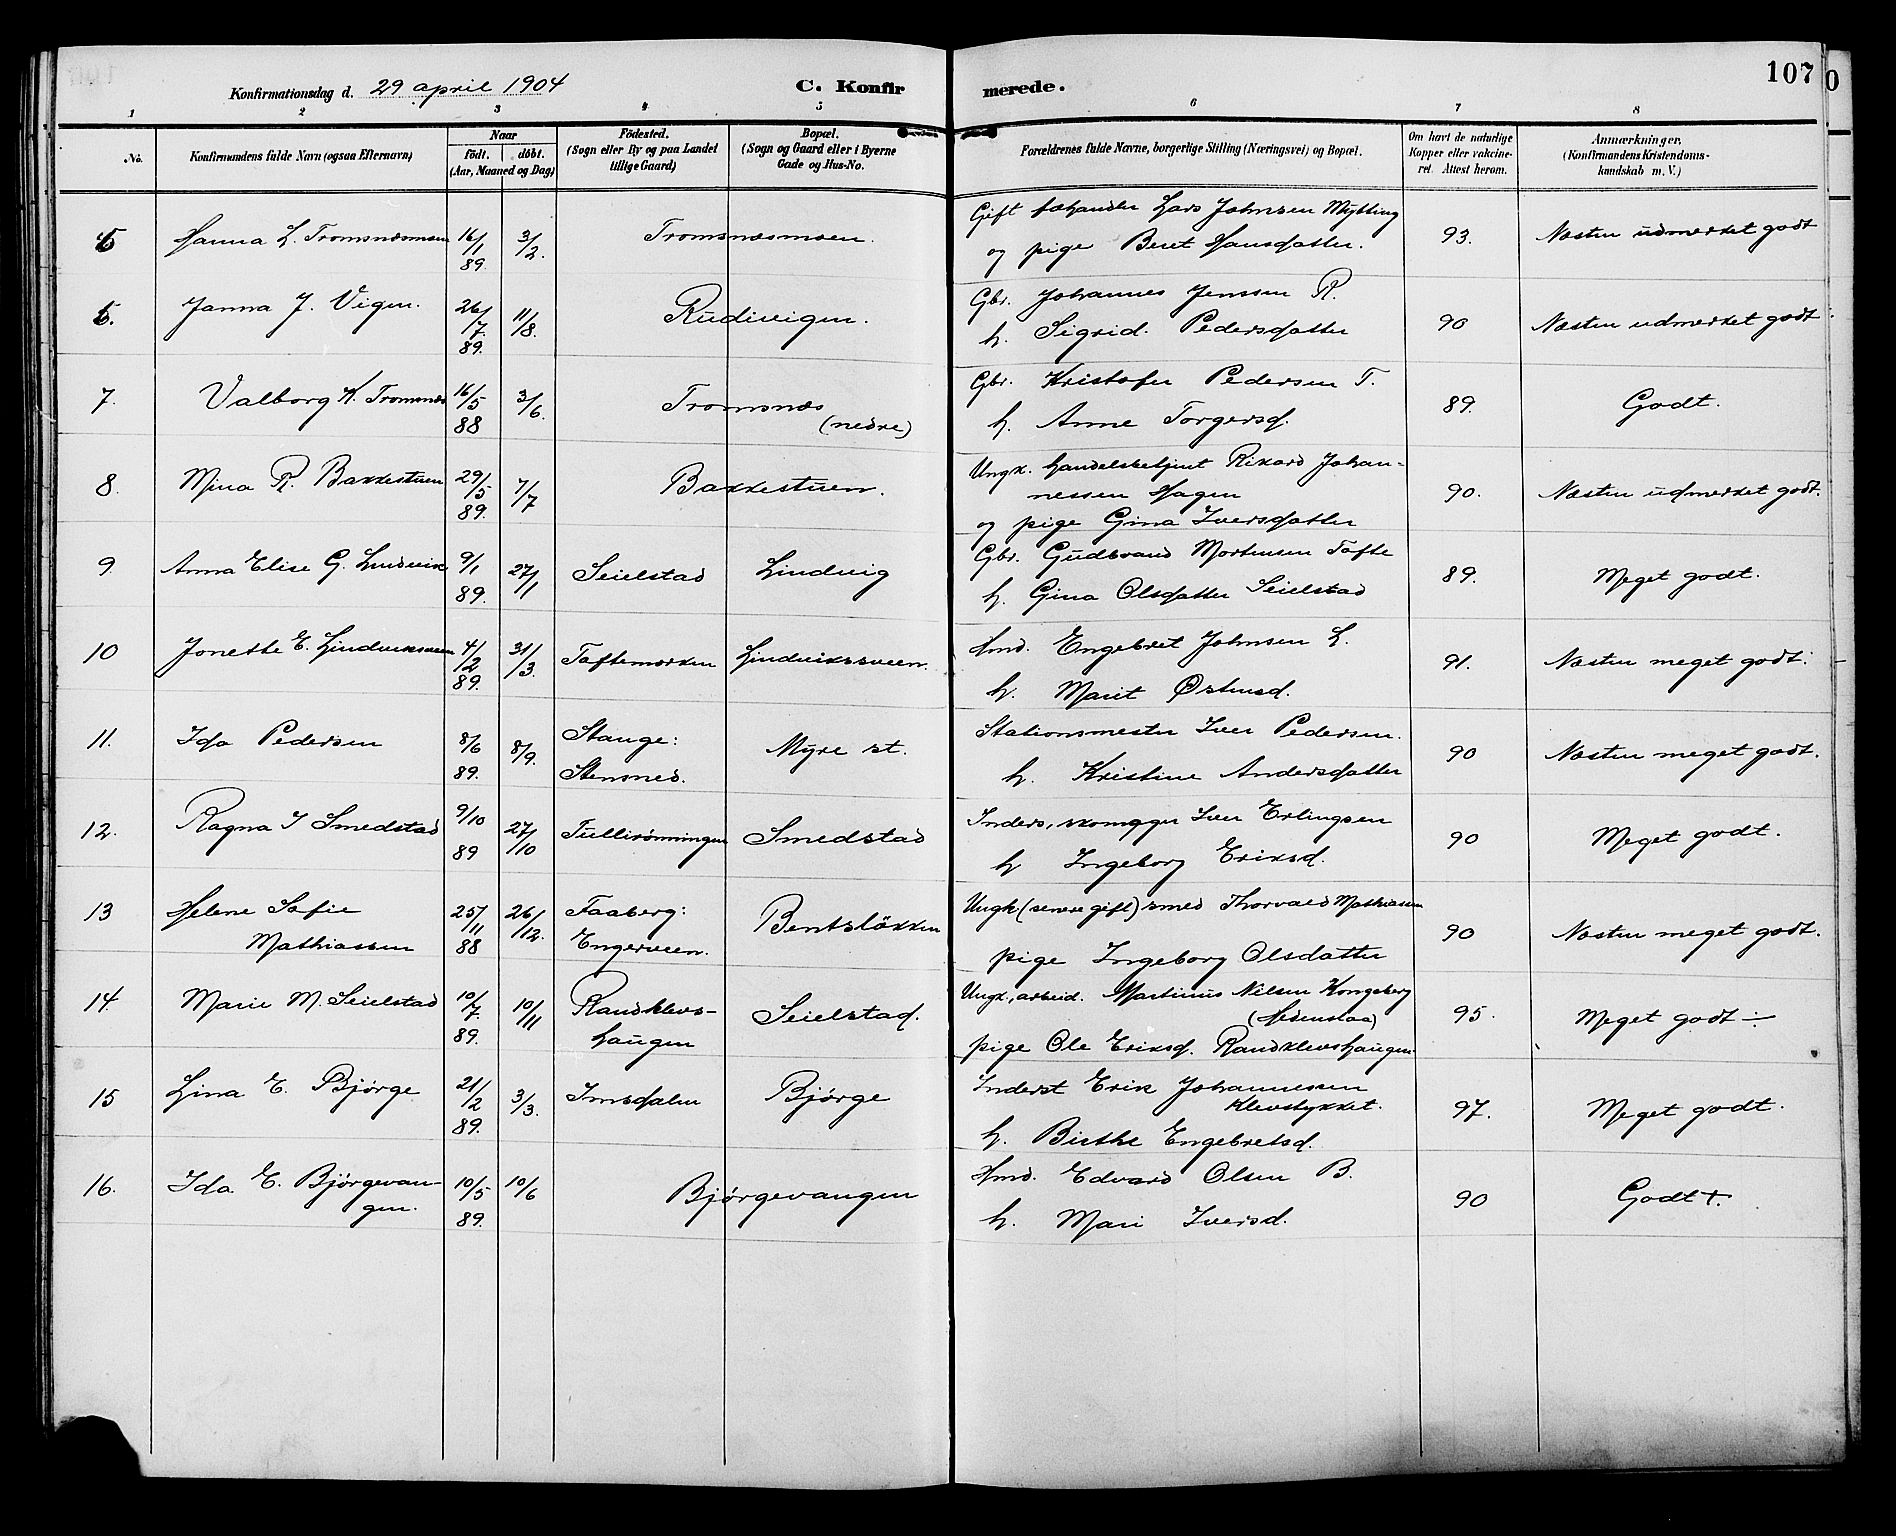 107
Konfirmationsdag d. 29 april 1904
C. Konfirmerede.
1 2 3 4 5 6 7 8
No.
Konfirmandens fulde Navn (ogsaa Efternavn)
Naar
födt. | döbt.
(Aar, Maaned og Dag)
Födested.
(Sogn eller By og paa Landet
tillige Gaard)
Bopæl.
(Sogn og Gaard eller i Byerne
Gade og Hus-No.
Forældrenes fulde Navne, borgerlige Stilling (Næringsvei) og Bopæl.
Om havt de naturlige
Kopper eller vakcine-
ret. Attest herom.
Anmærkninger,
(Konfirmandens Kristendoms-
kundskab m. V.)
5 Hanna L. Tromsnæsmoen 16/1 89. 3/2. Tromsnæsmoen. Gift Lars Johnsen Mytting 93. Næsten udmerket godt
og pige Beret Hansdatter.
6. Janna J. Vigen. 26/7. 89. 11/8. Rudivigen. Gbr. Johannes Jenssen R. 90 Næsten udmerket godt
h. Sigrid Pedersdatter
7. Valborg K. Tromsnæs 16/5 88 3/6. Tromsnæs (nedre) Gbr. Kristofer Pedersen T. 89. Godt.
h. Anne Torgersd.
8. Mina R. Bakkestuen 29/5 89. 7/7 Bakkestuen. Ungk. handelsbetjent Rikard Johan-
nessen Hagen 90. Næsten udmerket godt.
og pige Gina Iversdatter
9 Anna Elise G. Lindvik 9/1 89. 27/1 Seielstad Lindvig Gbr. Gudbrand Mortensen Tofte 89. Meget godt.
h. Gina Olsdatter Seielstad
10 Jonette E. Lindviksveen 4/2 89. 31/3. Toftemorken Lindviksveen. Hmd. Engebret Johnsen L. 91. Næsten meget godt.
h. Marit Østensd.
11. Ida Pedersen 8/6 89. 8/9. Stange: Stensned. Myre st. Stationsmester Iver Pedersen. 90 Næsten meget godt.
h. Kristine Andersdatter
12. Ragna I Smedstad 9/10 89 27/10 Tullirönningen Smedstad Inders, skomager Iver Erlingsen 90 Meget godt.
h Ingeborg Eriksd.
13 Helene Sofie
Mathiassen 25/11 88 26/12. Faaberg: Engesveen. Bentslökken Ungk. (senere gift) smed Thorvald Mathiassen 90 Næsten meget godt.
pige Ingeborg Olsdatter
14. Marie M. Seielstad 10/7. 89. 10/11 Randklevs-
haugen Seielstad. Ungk., arbeid. Martinus Nilsen Kongsberg 95. Meget godt ÷
pige Ole Eriksd. Randklevshaugen
15 Lina E. Bjørge 21/2 89. 3/3. Imsdalen Bjørge Inderst Erik Johannessen
Klevstykket. 97. Meget godt.
h. Birthe Engebretsd.
16. Ida E. Bjørgevan-
gen. 10/5 89. 10/6 Bjørgevangen Hmd. Edvard Olsen B. 90 Godt +.
h. Mari Iversd.